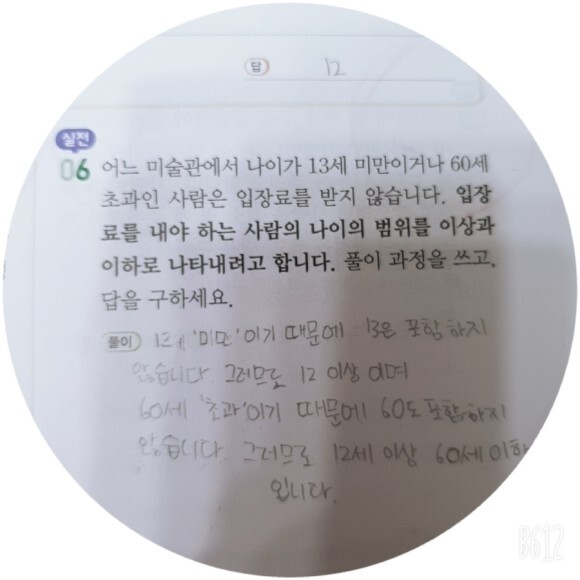 답 12
실전
06 어느 미술관에서 나이가 13세 미만이거나 60세
초과인 사람은 입장료를 받지 않습니다. 입장
료를 내야 하는 사람의 나이의 범위를 이상과
이하로 나타내려고 합니다. 풀이 과정을 쓰고,
답을 구하세요.
풀이 13세 '미만'이기 때문에 13은 포함하지
않습니다. 그러므로 12 이상 이며
60세 '초과'이기 때문에 60도 포함하지
않습니다. 그러므로 12세 이상 60세 이하
입니다.
B612